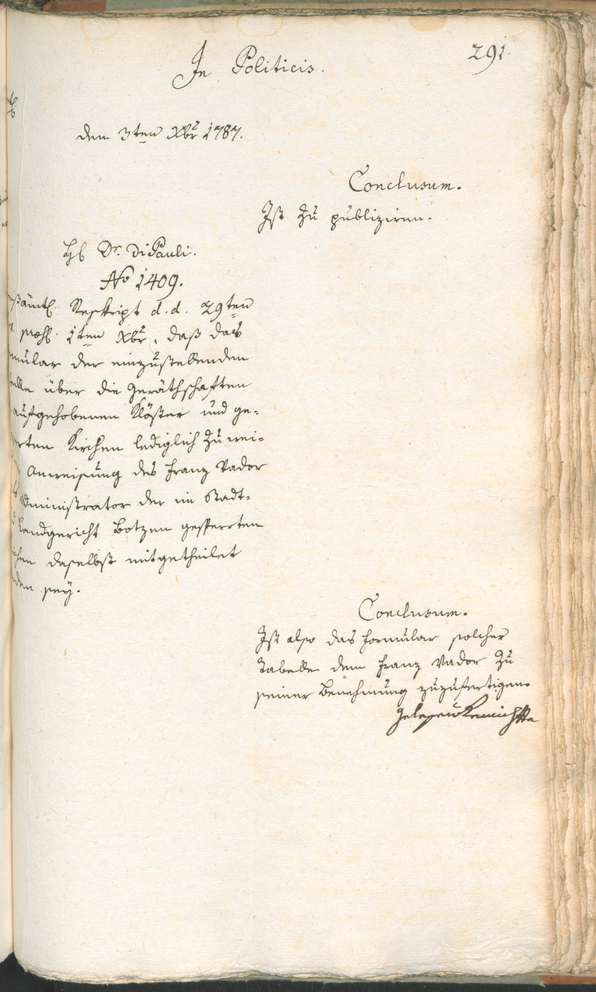 In Politicis.
291.
den 3ten Xbr 1787.
Conclusum.
Ist zu publiziren.
H Dr. DiPauli.
No 1409.
Reskript d. d. 29ten
1ten Xbr, daß das
mular der einzustellenden
belle über die Geräthschaften
aufgehobenen Klöster und ge-
rten Kirchen lediglich zu wei-
Anweisung des Franz Vador
Administrator der im Stadt-
Landgericht Botzen gesperrten
chen daselbst mitgetheilet
den sey.
Conclusum.
Ist also das Formular solcher
Tabelle dem Franz Vador zu
seiner Benehmung zuzufertigen.